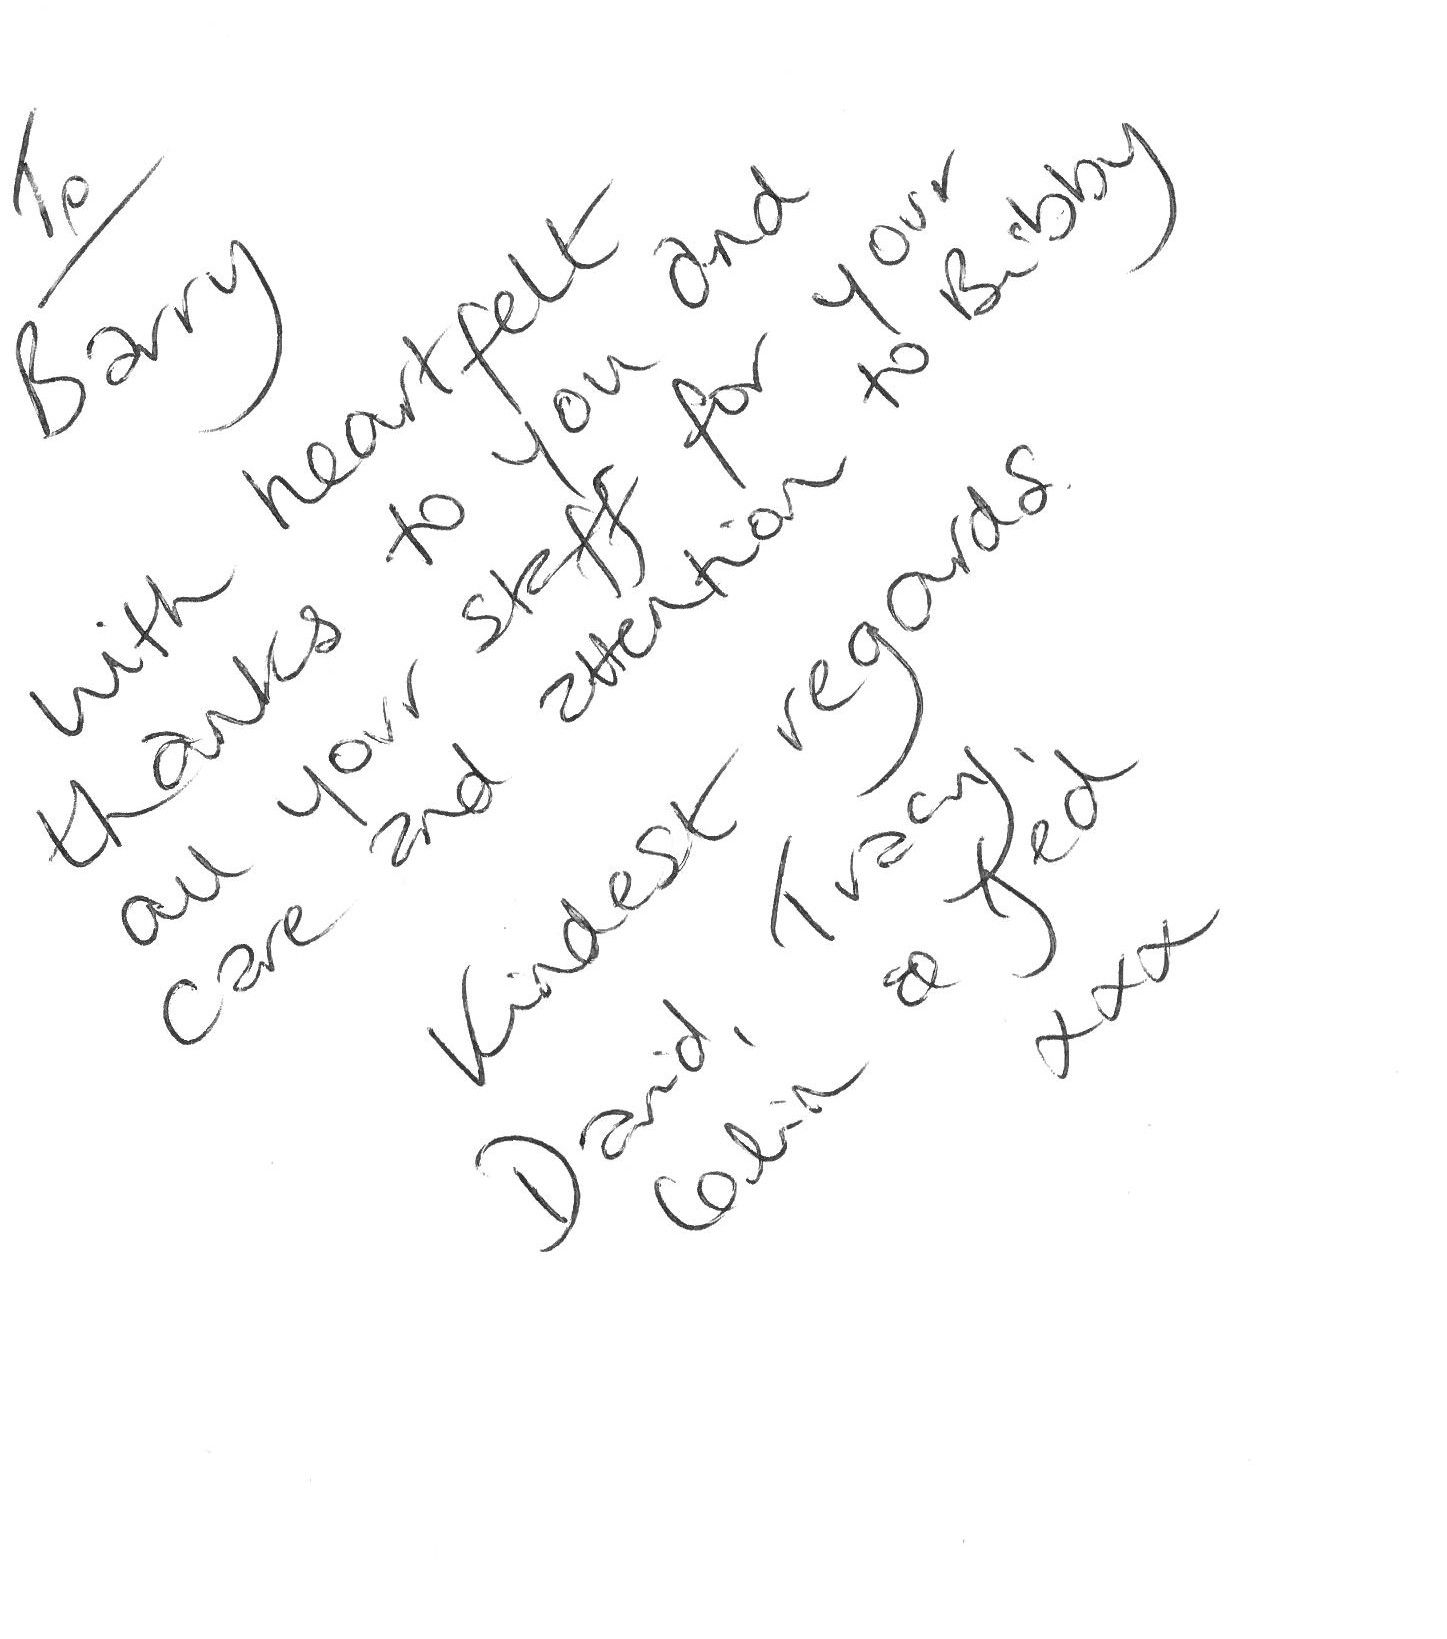 To/
Barry
With heartfelt
thanks to you and
all your staff for your
care and attention to Bibby
Kindest regards.
David, Tracy,
Colin & Jed
xxx